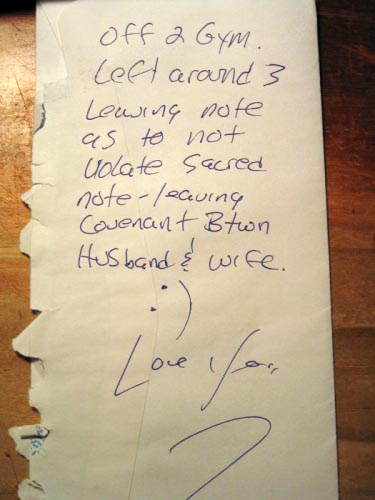 Off 2 Gym.
Left around 3
Leaving note
as to not
Violate Sacred
note-leaving
Covenant Btwn
Husband & wife.
:)
Love